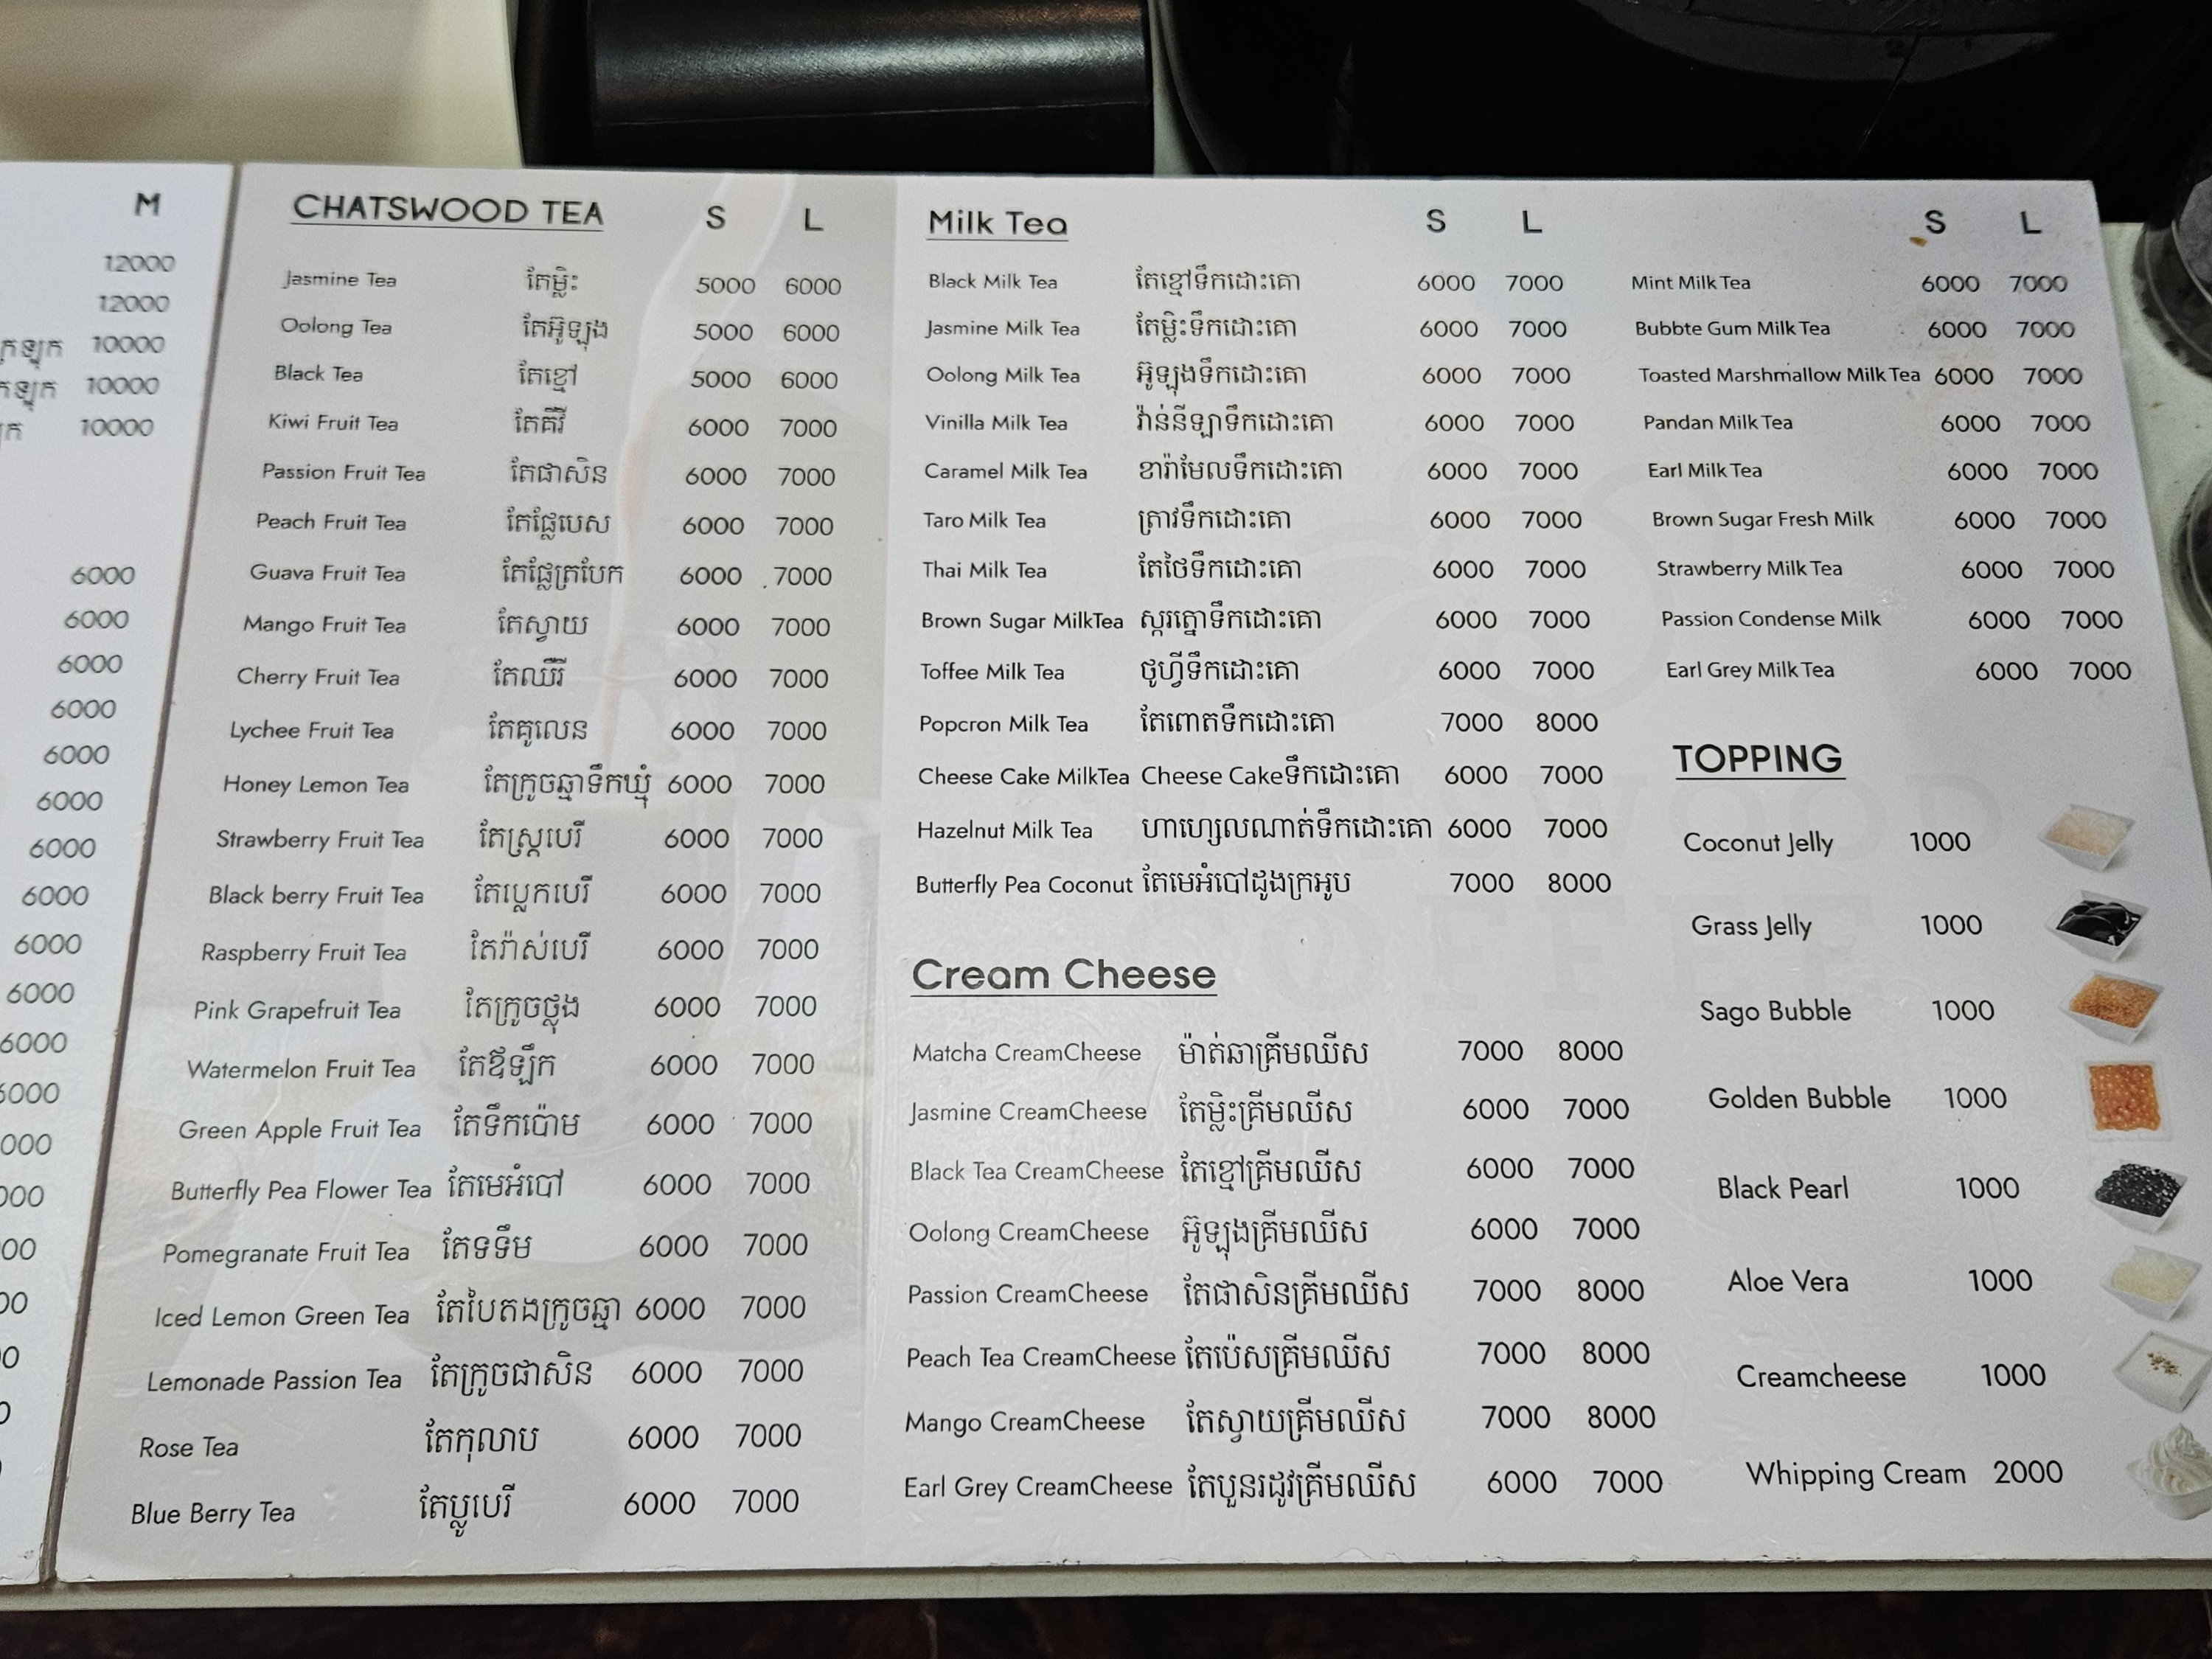 M
12000
12000
10000
10000
10000
6000
6000
6000
6000
6000
6000
6000
6000
6000
6000
6000
CHATSWOOD TEA S L
Jasmine Tea តែម្លិះ 5000 6000
Oolong Tea តែអ៊ូឡុង 5000 6000
Black Tea តែខ្មៅ 5000 6000
Kiwi Fruit Tea តែគីវី 6000 7000
Passion Fruit Tea តែផាសិន 6000 7000
Peach Fruit Tea តែផ្លែបេស 6000 7000
Guava Fruit Tea តែផ្លែត្របែក 6000 7000
Mango Fruit Tea តែស្វាយ 6000 7000
Cherry Fruit Tea តែឈឺរី 6000 7000
Lychee Fruit Tea តែគូលេន 6000 7000
Honey Lemon Tea តែក្រូចឆ្មាទឹកឃ្មុំ 6000 7000
Strawberry Fruit Tea តែស្ត្របេរី 6000 7000
Black berry Fruit Tea តែប្លេកបេរី 6000 7000
Raspberry Fruit Tea តែរ៉ាស់បេរី 6000 7000
Pink Grapefruit Tea តែក្រូចថ្លុង 6000 7000
Watermelon Fruit Tea តែឪឡឹក 6000 7000
Green Apple Fruit Tea តែទឹកប៉ោម 6000 7000
Butterfly Pea Flower Tea តែមេអំបៅ 6000 7000
Pomegranate Fruit Tea តែទទឹម 6000 7000
Iced Lemon Green Tea តែបៃតងក្រូចឆ្មា 6000 7000
Lemonade Passion Tea តែក្រូចផាសិន 6000 7000
Rose Tea តែកុលាប 6000 7000
Blue Berry Tea តែប្លូបេរី 6000 7000
Milk Tea S L
Black Milk Tea តែខ្មៅទឹកដោះគោ 6000 7000
Jasmine Milk Tea តែម្លិះទឹកដោះគោ 6000 7000
Oolong Milk Tea អ៊ូឡុងទឹកដោះគោ 6000 7000
Vinilla Milk Tea វ៉ាន់នីឡាទឹកដោះគោ 6000 7000
Caramel Milk Tea ខារ៉ាមែលទឹកដោះគោ 6000 7000
Taro Milk Tea ត្រាវទឹកដោះគោ 6000 7000
Thai Milk Tea តែថៃទឹកដោះគោ 6000 7000
Brown Sugar MilkTea ស្ករត្នោទឹកដោះគោ 6000 7000
Toffee Milk Tea ថូហ្វីទឹកដោះគោ 6000 7000
Popcron Milk Tea តែពោតទឹកដោះគោ 7000 8000
Cheese Cake MilkTea Cheese Cakeទឹកដោះគោ 6000 7000
Hazelnut Milk Tea ហាហ្សេលណាត់ទឹកដោះគោ 6000 7000
Butterfly Pea Coconut តែមេអំបៅដូងក្រអូប 7000 8000
Cream Cheese
Matcha CreamCheese ម៉ាត់ឆាគ្រីមឈីស 7000 8000
Jasmine CreamCheese តែម្លិះគ្រីមឈីស 6000 7000
Black Tea CreamCheese តែខ្មៅគ្រីមឈីស 6000 7000
Oolong CreamCheese អ៊ូឡុងគ្រីមឈីស 6000 7000
Passion CreamCheese តែផាសិនគ្រីមឈីស 7000 8000
Peach Tea CreamCheese តែប៉េសគ្រីមឈីស 7000 8000
Mango CreamCheese តែស្វាយគ្រីមឈីស 7000 8000
Earl Grey CreamCheese តែបួនរដូវគ្រីមឈីស 6000 7000
S L
Mint Milk Tea 6000 7000
Bubbte Gum Milk Tea 6000 7000
Toasted Marshmallow Milk Tea 6000 7000
Pandan Milk Tea 6000 7000
Earl Milk Tea 6000 7000
Brown Sugar Fresh Milk 6000 7000
Strawberry Milk Tea 6000 7000
Passion Condense Milk 6000 7000
Earl Grey Milk Tea 6000 7000
TOPPING
Coconut Jelly 1000
Grass Jelly 1000
Sago Bubble 1000
Golden Bubble 1000
Black Pearl 1000
Aloe Vera 1000
Creamcheese 1000
Whipping Cream 2000